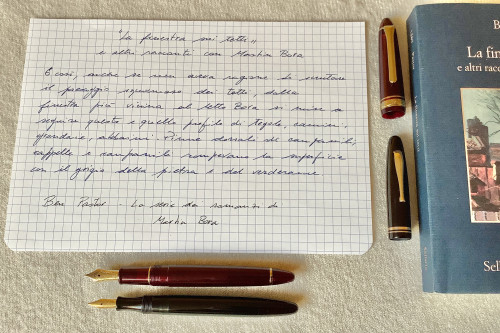 "La finestra sui tetti"
e altri racconti con Martin Bora
E così, anche se non aveva ragione di scrutare
il paesaggio sguarnito dei tetti, dalla
finestra più vicina al letto Bora si mise a
seguire questo e quello profilo di tegole, camini,
grondaie, abbaini. Pinne dorsali di campanili,
cappelle e campanili rompevano la superficie
con il grigio della pietra e del verderame.
Ben Pastor - La serie dei romanzi di
Martin Bora
B
La fin
e altri racc
Sell